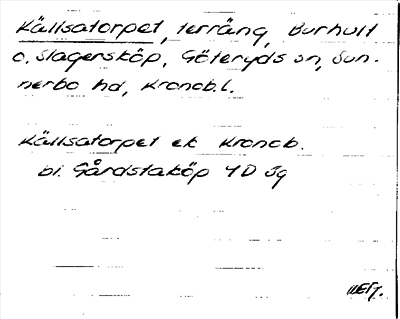 Källsatorpet, terräng, Burhult
o. Slagersköp, Göteryds sn, Sun-
nerbo hd, Kronob.l.
Källsatorpet ek Kronob.
bl. Gårdstaköp 4D Jg